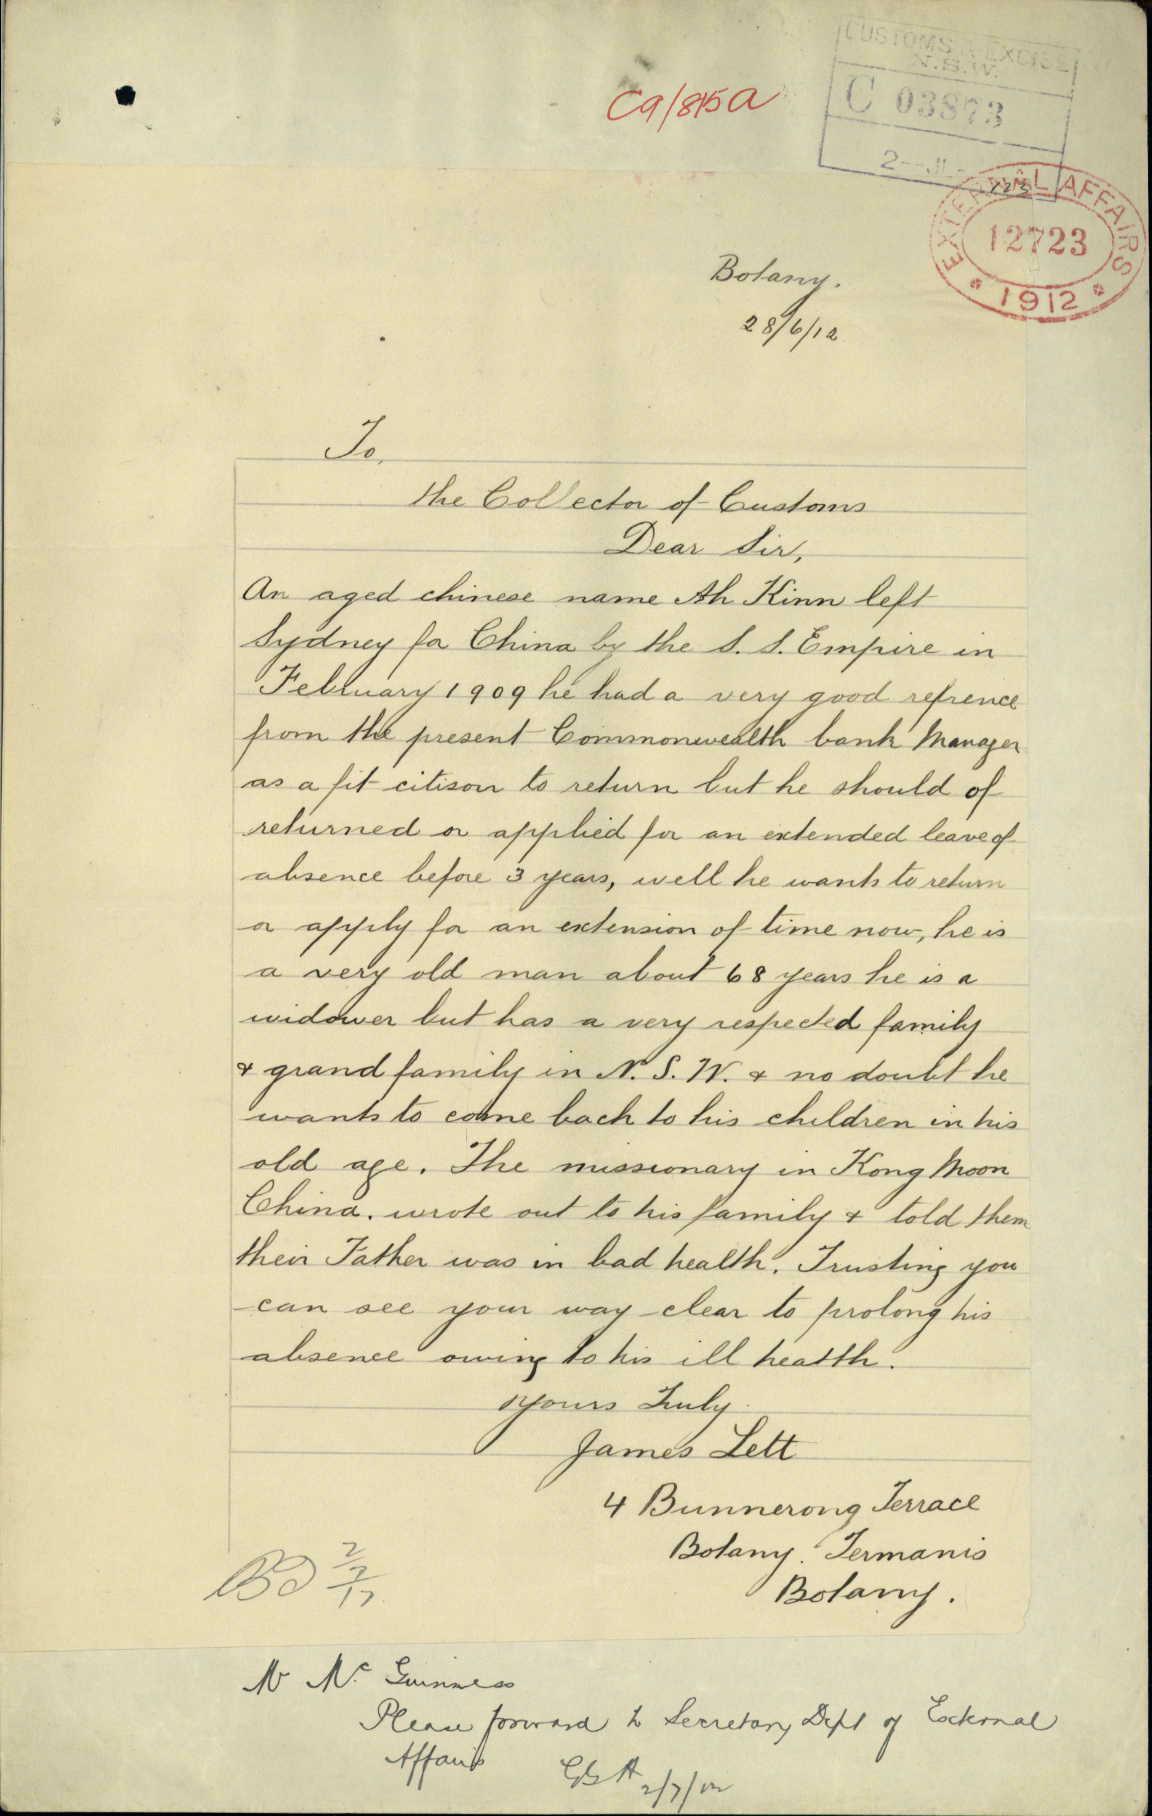 CUSTOMS & EXCISE
N.S.W.
C9/815a
C 03873
2-JL
EXTERNAL AFFAIRS
12723
1912
Botany.
28/6/12
To,
the Collector of Customs
Dear Sir,
An aged chinese name Ah Kinn left
Sydney for China by the S. S. Empire in
February 1909 he had a very good refrence
from the present Commonwealth bank Manager
as a fit citison to return but he should of
returned or applied for an extended leave of
absence before 3 years, well he wants to return
or apply for an extension of time now, he is
a very old man about 68 years he is a
widower but has a very respected family
& grand family in N. S. W. & no doubt he
wants to come back to his children in his
old age. The missionary in Kong Moon
China. wrote out to his family & told them
their Father was in bad health. Trusting you
can see your way clear to prolong his
absence owing to his ill heatth.
Yours Truly
James Lett
4 Bunnerong Terrace
Botany. Termanis
Botany.
Mr McGuinness
Please forward to Secretary Dept of External
Affairs
2/7/12